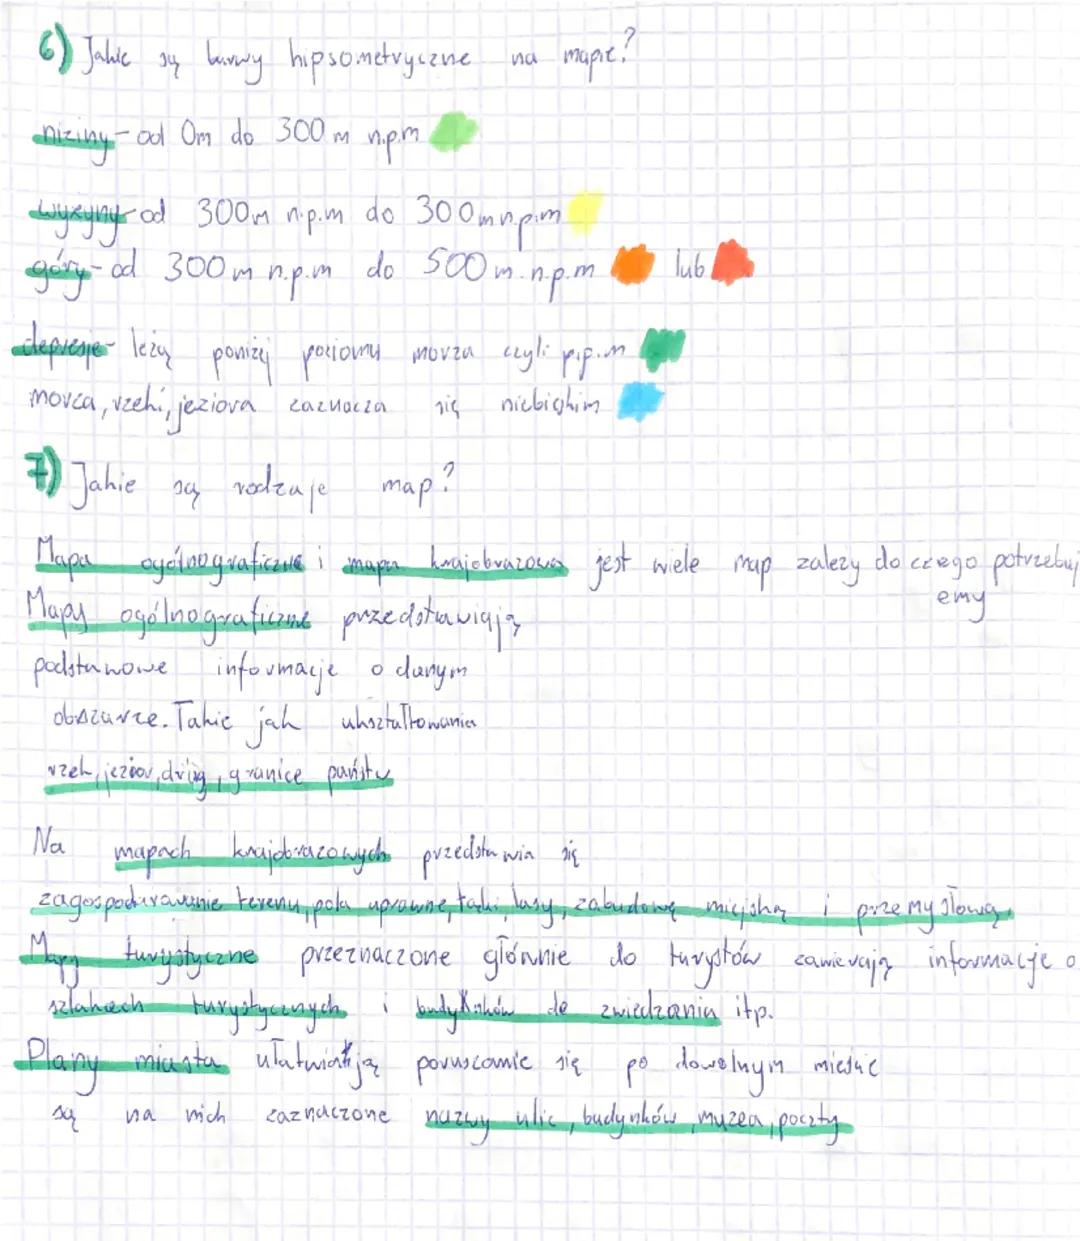 6) Jakie są barwy hipsometryczne na mapie?
niziny - od 0m do 300 m n.p.m
wyżyny - od 300m n.p.m do 300m n.p.m
góry - od 300 m n.p.m do 500 m.n.p.m lub
depresje - leżą poniżej poziomu morza czyli p.p.m
morza, rzeki, jeziora zaznacza się niebieskim
7) Jakie są rodzaje map?
Mapa ogólnograficzne i mapa krajobrazowa jest wiele map zależy do czego potrzebuj
emy
Mapy ogólnograficzne przedstawiają
podstawowe informacje o danym
obszarze. Takie jak ukształtowania
rzek, jezior, dróg, granice państw
Na mapach krajobrazowych przedstawia się
zagospodarowanie terenu, pola uprawne, łąki, lasy, zabudowę miejską i przemysłową.
Mapy turystyczne przeznaczone głównie do turystów zawierają informacje o
szlakach turystycznych i budynków do zwiedzania itp.
Plany miasta ułatwiają poruszanie się po dowolnym mieście
są na nich zaznaczone nazwy ulic, budynków, muzea, poczty